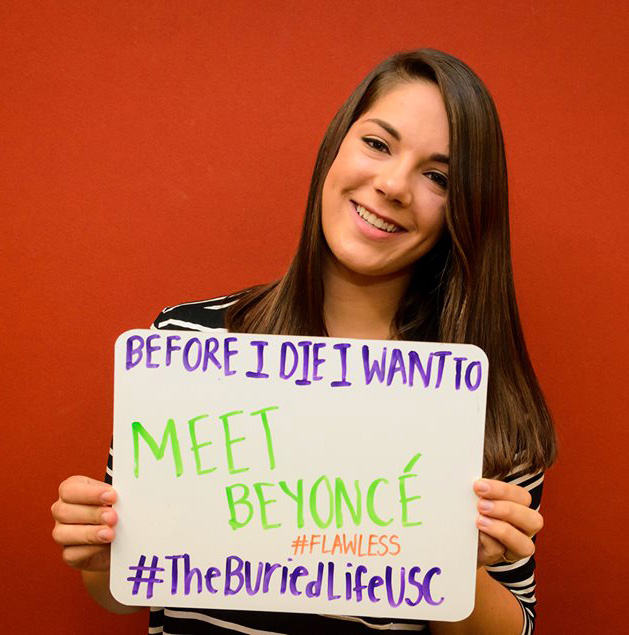 BEFORE I DIE I WANT TO
MEET
BEYONCÉ
#FLAWLESS
#TheBuriedLifeUSC